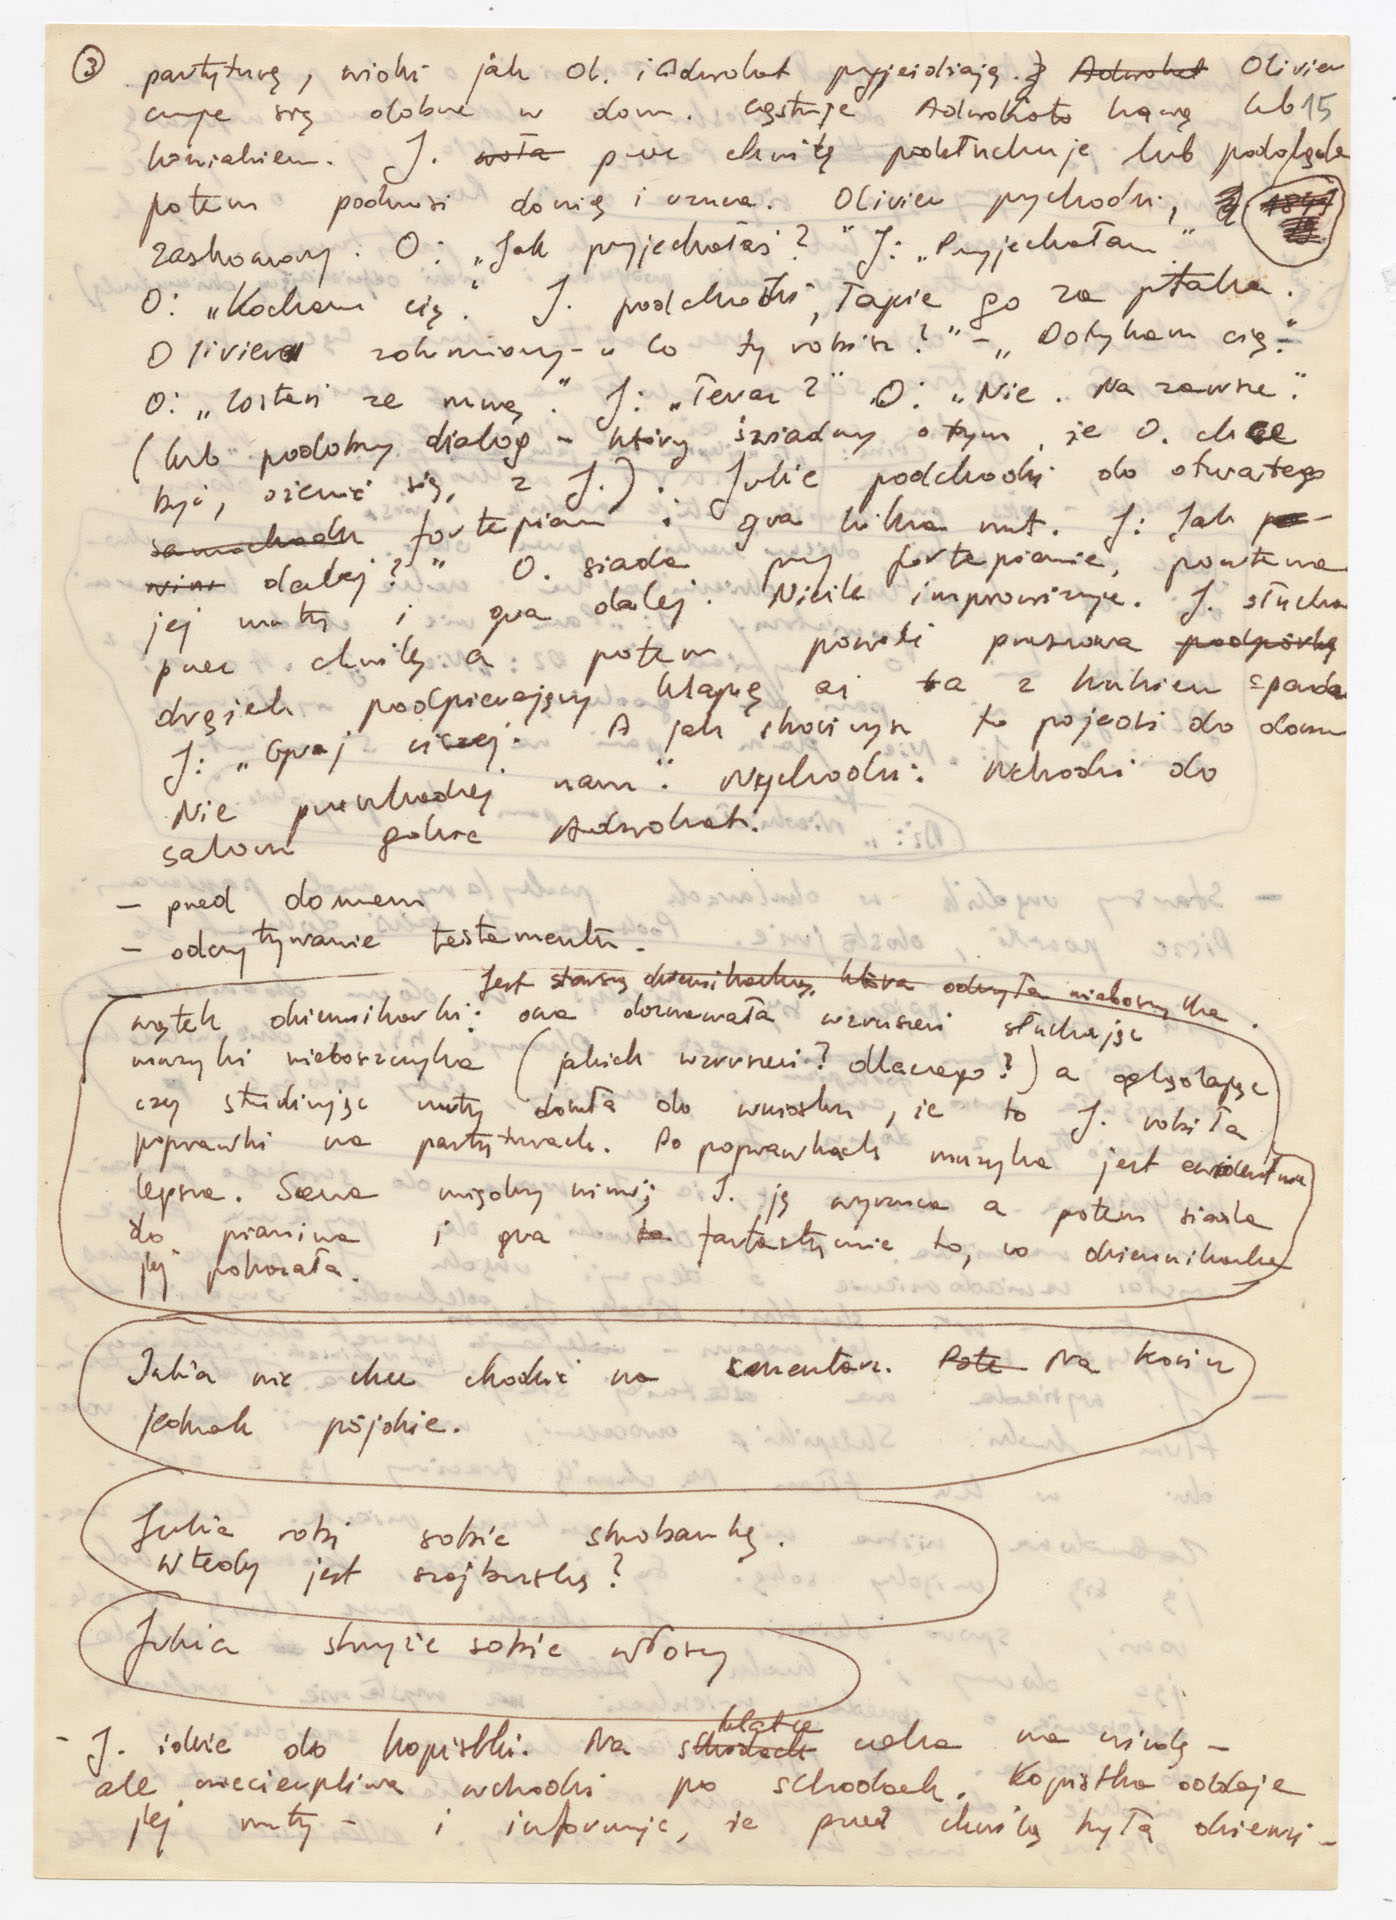 ③ partyturę, widzi jak Ol. i Adwokat przyjeżdżają. Adwokat Olivier
czuje się dobrze w domu. częstuje Adwokata kawą lub 15
koniakiem. J. woła przez chwilę podsłuchuje lub podgląda
potem podnosi donicę i rzuca. Olivier przychodzi,
zaskoczony. O: „Jak przyjechałaś?" J: „Przyjechałam"
O: „Kocham cię." J. podchodzi, łapie go za ptaka.
Olivier zdumiony - „Co ty robisz?" - „Dotykam cię."
O: „Zostań ze mną." J: „Teraz?" O: „Nie. Na zawsze."
(lub podobny dialog - który świadczy o tym, że O. chce
być, ożenić się, z J.). Julie podchodzi do otwartego
samochodu fortepianu i gra kilka nut. J: Jak
dalej?" O. siada przy fortepianie, powtarza
jej nuty i gra dalej. Nieźle improwizuje. J. słucha
przez chwilę a potem powoli przesuwa podpórkę
drążek podpierający klapę aż ta z hukiem spada
J: „Graj ciszej. A jak skończysz to pojedź do domu
Nie przeszkadzaj nam". Wychodzi. Wchodzi do
salonu gdzie Adwokat.
- przed domem
- odczytywanie testamentu.
Jest starszą dziennikarką, która odkryła nieboszczyka.
wątek dziennikarki: ona doznawała wzruszeń słuchając
muzyki nieboszczyka (jakich wzruszeń? dlaczego?) a oglądając
czy studiując nuty doszła do wniosku, że to J. robiła
poprawki na partyturach. Po poprawkach muzyka jest ewidentnie
lepsza. Scena między nimi; J. ją wyrzuca a potem siada
do pianina i gra to fantastycznie to, co dziennikarka
jej pokazała.
Julia nie chce chodzić na cmentarz. Na końcu
jednak pójdzie.
Julia robi sobie skrobankę.
Wtedy jest szajbuską?
Julia strzyże sobie włosy
klatce
- J. idzie do kopistki. Na schodach czeka na windę -
ale niecierpliwa wchodzi po schodach. Kopistka oddaje
jej nuty - i informuje, że przed chwilą była dzienni-